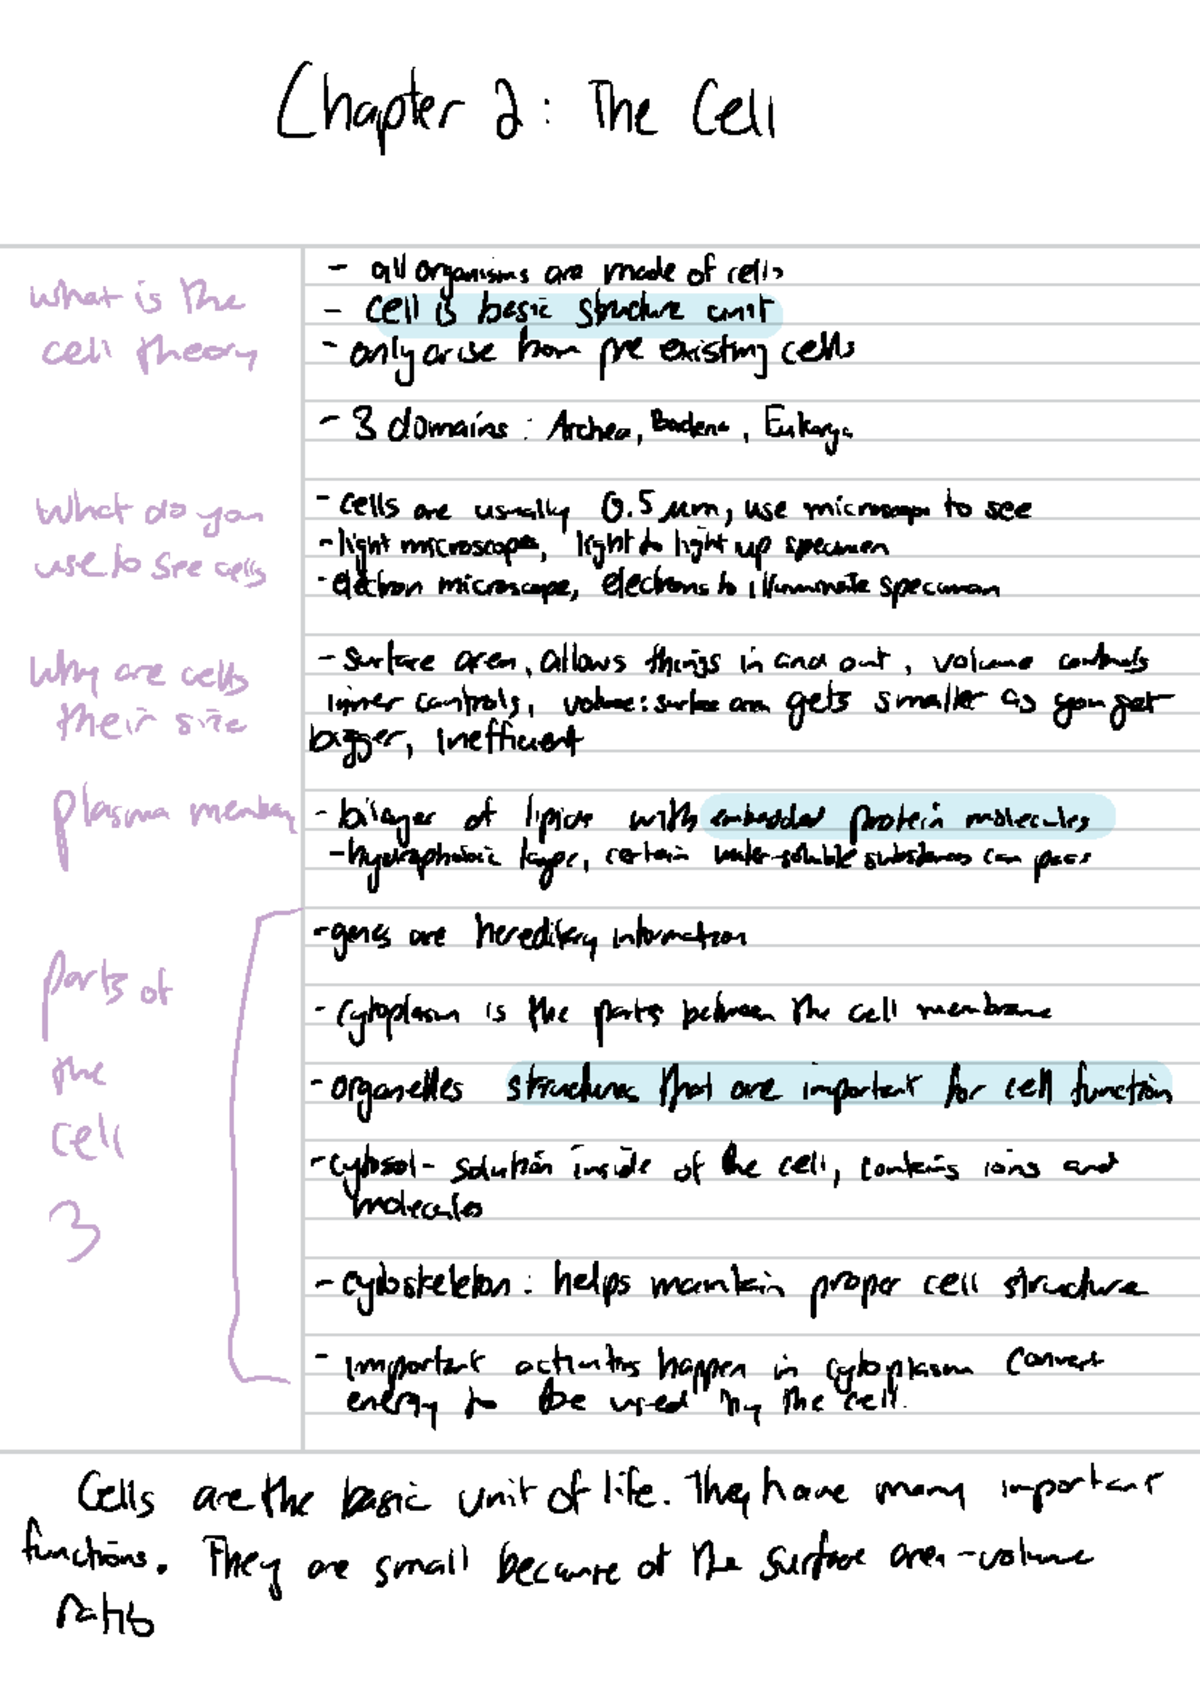 Chapter 2: The Cell
what is the
cell theory
- all organisms are made of cells
- cell is basic structure unit
- only arise from pre existing cells
- 3 domains: Archea, Bacteria, Eukarya
What do you
use to see cells
- cells are usually 0.5 μm, use microscope to see
- light microscope, light to light up specimen
- electron microscope, electrons to illuminate specimen
Why are cells
their size
- surface area, allows things in and out, volume controls
inner controls, volume:surface area gets smaller as you get
bigger, inefficient
plasma membrany
- bilayer of lipids with embedded protein molecules
- hydrophobic layer, certain water-soluble substances can pass
parts of
the
cell
3
- genes are hereditary information
- cytoplasm is the parts between the cell membrane
- organelles structures that are important for cell function
- cytosol - solution inside of the cell, contains ions and
molecules
- cytoskeleton: helps maintain proper cell structure
- important activities happen in cytoplasm convert
energy to be used by the cell.
Cells are the basic unit of life. They have many important
functions. They are small because of the surface area-volume
ratio